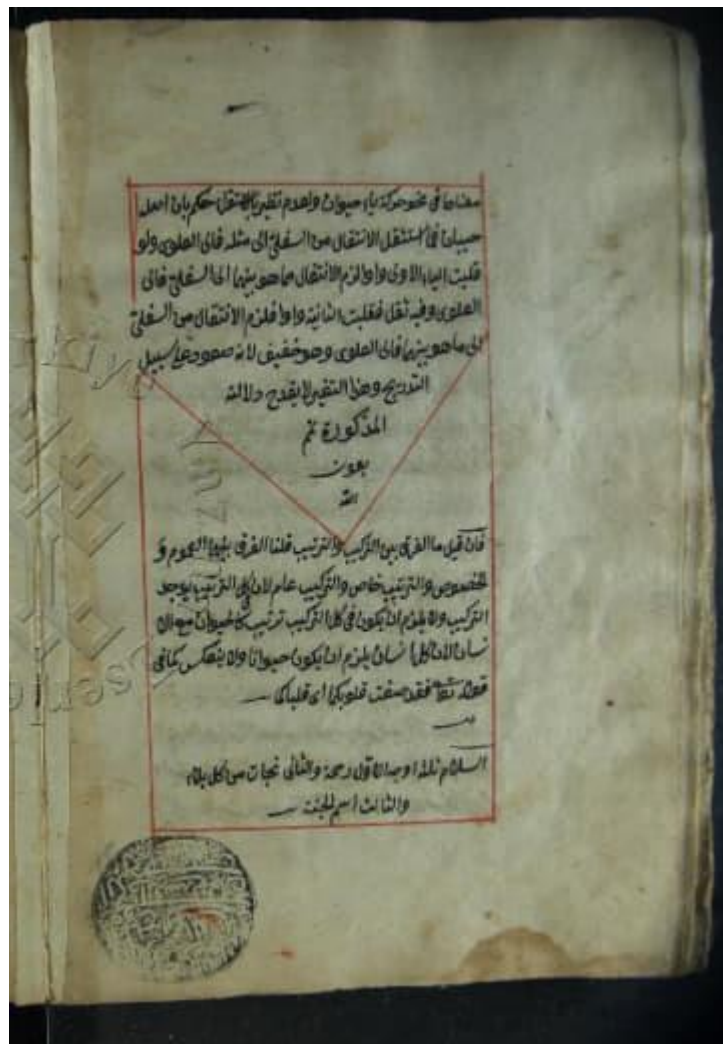 معناها في نحو حركة ياء حيوان ولعدم نظيرها حكم بان اصله
حييان فاستثقل الانتقال من السفلى الى مثله فالى العلوى ولو
قلبت الياء الاولى واوا لزم الانتقال مما هو بينهما الى السفلى فالى
العلوى وفيه ثقل فقلبت الثانية واوا فلزم الانتقال من السفلى
الى ما هو بينهما فالى العلوى وهو خفيف لانه صعود على سبيل
التدريج وهذا التغير لا يقدح دلالته
المذكورة تم
بعون
الله
فان قيل ما الفرق بين التركيب والترتيب قلنا الفرق بينهما العموم و
الخصوص والترتيب خاص والتركيب عام لان كل الترتيب يوجد
التركيب ولا يلزم ان يكون في كل التركيب ترتيب كالحيوان مع الا
نسان لان كل انسان يلزم ان يكون حيوانا ولا ينعكس كما في
قوله تعالى فقد صغت قلوبكما اى قلباكما
السلام ثلثة اوجه الاول رحمة والثانى نجات من كل بلاء
والثالث اسم الجنة